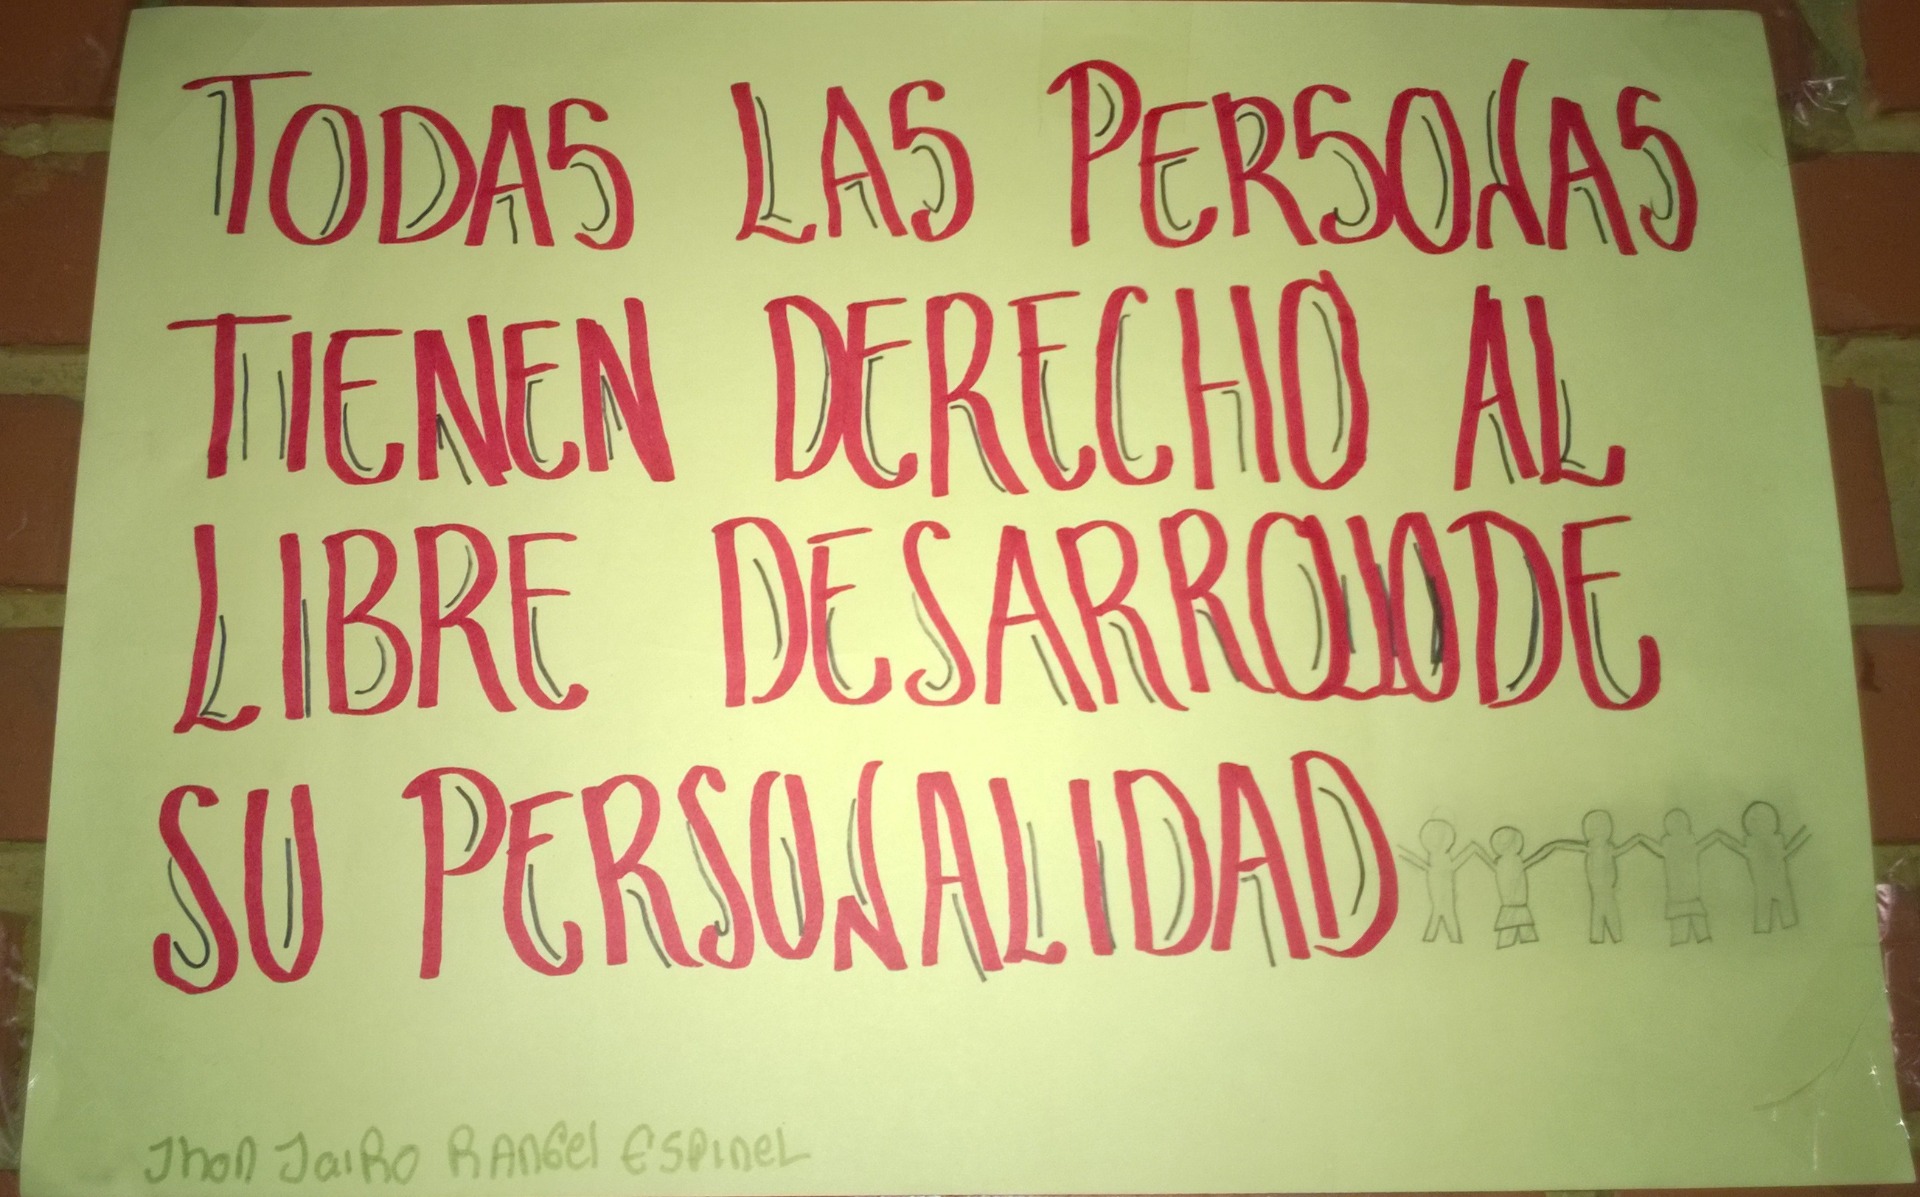 TODAS LAS PERSONAS
TIENEN DERECHO AL
LIBRE DESARROLLO DE
SU PERSONALIDAD
Jhon JaiRo RANGel ESPINEL